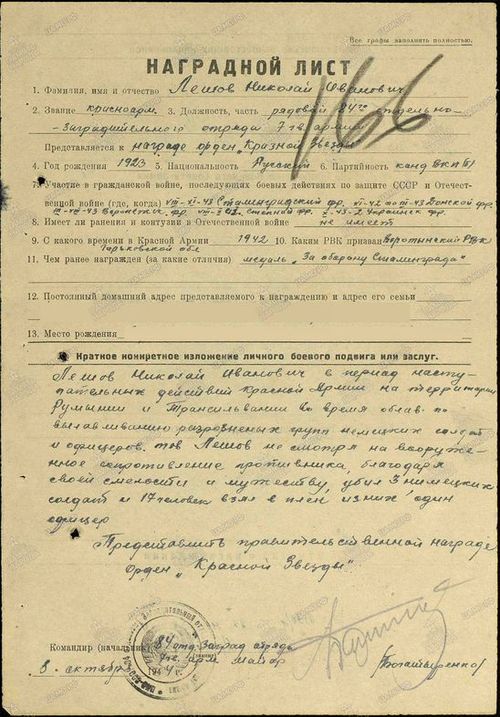 Все графы заполнять полностью.
НАГРАДНОЙ ЛИСТ
1. Фамилия, имя и отчество Лешов Николай Иванович
2. Звание красноарм. 3. Должность, часть рядовой 84го отдельно-
-заградительного отряда 7 гв. армии
166
Представляется к награде орден "Красной Звезды"
4. Год рождения 1923 5. Национальность Русский 6. Партийность канд ВКП(б)
7. Участие в гражданской войне, последующих боевых действиях по защите СССР и Отечест-
венной войне (где, когда) Сталинградский фр. Донской фр.
Воронеж. фр. Степной фр. 2 Украинск фр.
8. Имеет ли ранения и контузии в Отечественной войне не имеет
9. С какого времени в Красной Армии 1942 10. Каким РВК призван Воротынский РВК
Горьковской обл
11. Чем ранее награжден (за какие отличия) медаль "За оборону Сталинграда"
12. Постоянный домашний адрес представляемого к награждению и адрес его семьи
13. Место рождения
Краткое конкретное изложение личного боевого подвига или заслуг.
Лешов Николай Иванович в период насту-
пательных действий Красной Армии на территории
Румынии и Трансильвании во время облав по
вылавливанию разрозненых групп немецких солдат
и офицеров. тов Лешов не смотря на вооруже-
нное сопротивление противника, благодаря
своей смелости и мужеству, убил 3 немецких
солдат и 17 человек взял в плен из них один
офицер
Представить правительственной награде
Орден "Красной Звезды"
Командир (начальник) 84 отд Заград отряда
7 гв. арм. майор
8. октября 1944 г. /Богатыренко/